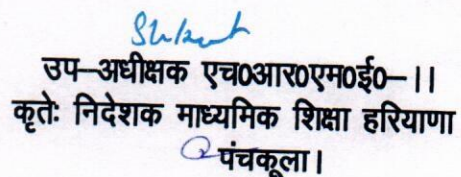 उप–अधीक्षक एच0आर0एम0ई0–।।
कृतेः निदेशक माध्यमिक शिक्षा हरियाणा
पंचकूला।